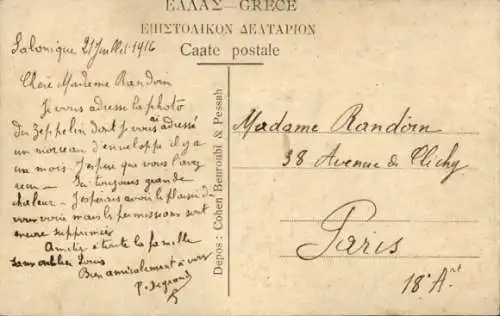 ΕΛΛΑΣ—GRÈCE
ΕΠΙΣΤΟΛΙΚΟΝ ΔΕΛΤΑΡΙΟΝ
Caate postale
Salonique 21 Juillet 1916
Chère Madame Randoin
Je vous adresse la photo
du Zeppelin dont je vous ai adressé
un morceau d'enveloppe il y a
un mois. J'espère que vous l'avez
reçu — Ici toujours grande
chaleur — J'esperais avoir le plaisir de
vous voir mais les permissions sont
encore supprimées
Amitiés à toute la famille
sans oublier Louis
Bien amicalement à vous
Depos: Cohen Benroubi & Pessah
Madame Randoin
38 Avenue de Clichy
Paris
18e Art